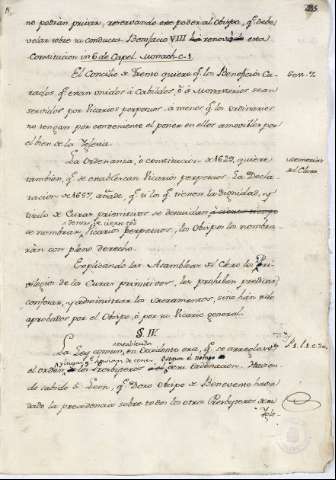 no podrian privar, reservando ese poder al Obispo, qe. debe
velar sobre su conducta. Bonifacio VIII renovó esta
Constitucion in 6 de Capel. Monach. c. 1.
El Concilio de Trento quiere qe. los Beneficios Cu-
rados qe. eran unidos à Cabildos, ò à Monasterios sean
servidos por Vicarios perpetuos à menos qe. los ordinarios
no tengan por conveniente el poner en ellos amovibles por
el bien de la Iglesia.
Sess. 7.
La Ordenanza, ò constitucion de 1629, quiere
tambien, qe. se establezcan Vicarios perpetuos. La Decla-
racion de 1657, añade, qe. si los qe. tienen la Dignidad, y
titulo de Curas primitivos se descuidan
de nombrar, Vicarios perpetuos, los Obispos los nombra-
rán con pleno derecho.
Memorias
del Clero
Explicando las Asambleas del Clero los Pri-
vilegios de los Curas primitivos, les prohiben predicar,
confesar, y administrar los Sacramentos, sino han sido
aprobados por el Obispo, ò por su Vicario general.
§ IV.
La Ley comun, en Occidente era, qe. se arreglase
el orden, de los Presbyteros su Ordenacion.
sabido S. Leon, qe. Doro Obispo de Benevento havia
dado la precedencia sobre todos los otros Presbyteros de su